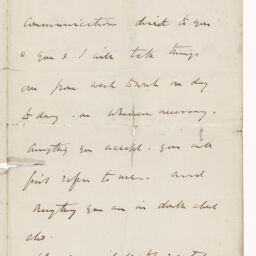 communications direct to you
& you & I will talk things
over from week to week or day
to day. or whenever necessary.
Anything you accept. you will
first refer to me. And
Anything you are in doubt about
also.